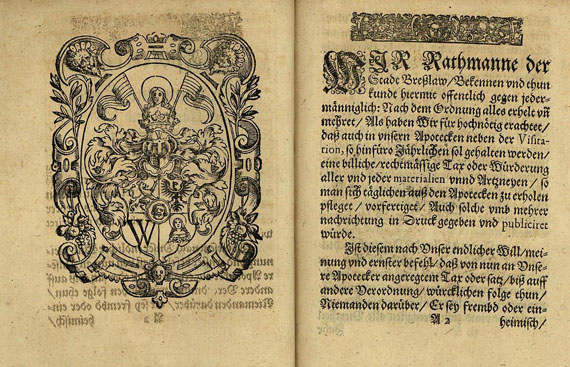 W
WIR Rathmanne der
Stadt Breßlaw/Bekennen vnd thun
kunde hiermit offentlich gegen jeder-
männiglich: Nach dem Ordnung alles erhelt vñ
mehret/ Als haben Wir für hochnötig erachtet/
daß auch in vnsern Apotecken neben der Visita-
tion, so hinfüro Jährlichen sol gehalten werden/
eine billiche/rechtmässige Tax oder Würderung
aller vnd jeder materialien vnnd Artzneyen/ so
man sich täglichen auß den Apotecken zu erholen
pfleget/ vorfertiget/ Auch solche vmb mehrer
nachrichtung in Druck gegeben vnd publiciret
würde.
Ist diesem nach Vnser endlicher Will/mei-
nung vnd ernster befehl/ daß von nun an Vnse-
re Apotecker angeregtem Tax oder satz/ biß auff
andere Verordnung/ würcklichen folge thun/
Niemanden darüber/ Er sey frembd oder ein-
A 2 heimisch/